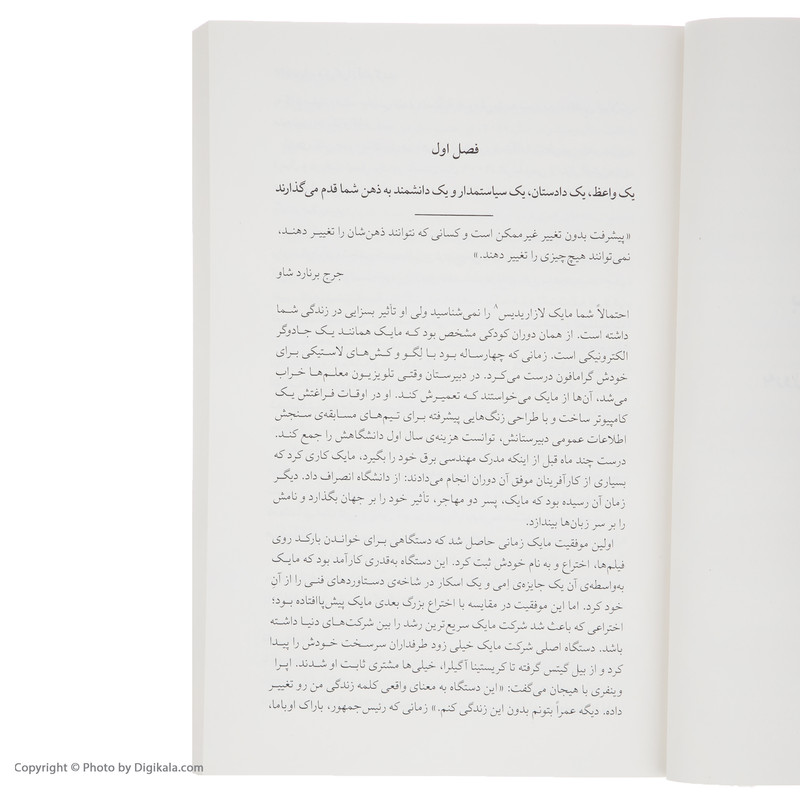 فصل اول
یک واعظ، یک دادستان، یک سیاستمدار و یک دانشمند به ذهن شما قدم می‌گذارند
«پیشرفت بدون تغییر غیرممکن است و کسانی که نتوانند ذهن‌شان را تغییر دهند،
نمی‌توانند هیچ‌چیزی را تغییر دهند.»
جرج برنارد شاو
احتمالاً شما مایک لازاریدیس۸ را نمی‌شناسید ولی او تأثیر بسزایی در زندگی شما
داشته است. از همان دوران کودکی مشخص بود که مایک همانند یک جادوگر
الکترونیکی است. زمانی که چهارساله بود با لِگو و کش‌های لاستیکی برای
خودش گرامافون درست می‌کرد. در دبیرستان وقتی تلویزیون معلم‌ها خراب
می‌شد، آن‌ها از مایک می‌خواستند که تعمیرش کند. او در اوقات فراغتش یک
کامپیوتر ساخت و با طراحی زنگ‌هایی پیشرفته برای تیم‌های مسابقه‌ی سنجش
اطلاعات عمومی دبیرستانش، توانست هزینه‌ی سال اول دانشگاهش را جمع کند.
درست چند ماه قبل از اینکه مدرک مهندسی برق خود را بگیرد، مایک کاری کرد که
بسیاری از کارآفرینان موفق آن دوران انجام می‌دادند: از دانشگاه انصراف داد. دیگر
زمان آن رسیده بود که مایک، پسر دو مهاجر، تأثیر خود را بر جهان بگذارد و نامش
را بر سر زبان‌ها بیندازد.
اولین موفقیت مایک زمانی حاصل شد که دستگاهی برای خواندن بارکد روی
فیلم‌ها، اختراع و به نام خودش ثبت کرد. این دستگاه به‌قدری کارآمد بود که مایک
به‌واسطه‌ی آن یک جایزه‌ی اِمی و یک اسکار در شاخه‌ی دستاوردهای فنی را از آنِ
خود کرد. اما این موفقیت در مقایسه با اختراع بزرگ بعدی مایک پیش‌پاافتاده بود؛
اختراعی که باعث شد شرکت مایک سریع‌ترین رشد را بین شرکت‌های دنیا داشته
باشد. دستگاه اصلی شرکت مایک خیلی زود طرفداران سرسخت خودش را پیدا
کرد و از بیل گیتس گرفته تا کریستینا آگیلرا، خیلی‌ها مشتری ثابت او شدند. اپرا
وینفری با هیجان می‌گفت: «این دستگاه به معنای واقعی کلمه زندگی من رو تغییر
داده. دیگه عمراً بتونم بدون این زندگی کنم.» زمانی که رئیس‌جمهور، باراک اوباما،
Copyright © Photo by Digikala.com